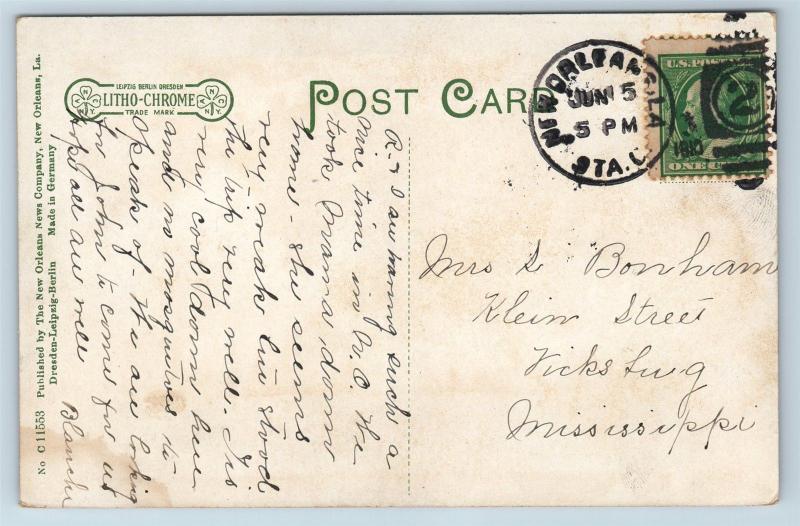 POST CARD
LEIPZIG BERLIN DRESDEN
LITHO-CHROME
TRADE MARK
No C 11553 Published by The New Orleans News Company, New Orleans, La.
Dresden-Leipzig-Berlin Made in Germany
NEW ORLEANS, LA
JUN 5
5 PM
1910
STA. C.
2
U.S. POST
ONE C
R & I are having such a
nice time in N. O. We
took Mama down
home - She seems
very weak but stood
the trip very well. Its
very cool down here
and no mosquitoes to
speak of - We are looking
for John to come for us
Hope all are well
Blanche
Mrs S. Bonham
Klein Street
Vicksburg
Mississippi